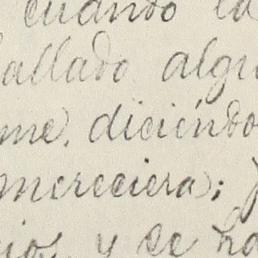 cuando la
allado algu
me, diciéndo
mereciera; 
y se ha